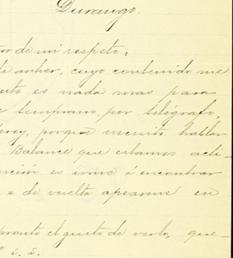 Durango.
de mi respeto:
de anher, cuyo contenido me
es nada mas para
temprano, por telégrafo,
porque necesito hablar
Balance que estamos acti-
es irme á encontrar
de vuelta apearme en
pronto el gusto de verlo, que-